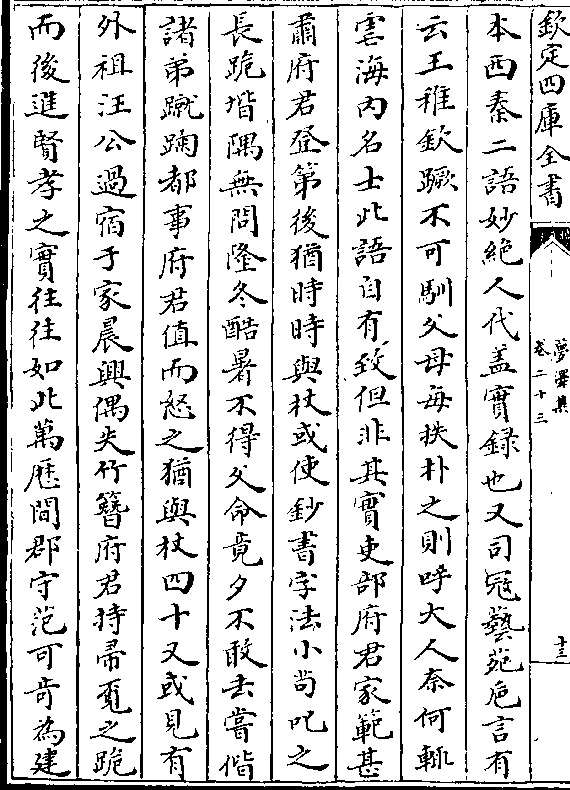 欽定四庫全書
夢澤集
卷二十三
十三
本西秦二語妙絕人代盖實録也又司冦藝苑巵言有
云王稚欽蹶不可馴父母每抶扑之則呼大人奈何輒
虐海内名士此語自有致但非其實吏部府君家範甚
肅府君登第後猶時時與杖或使鈔書字法小茍叱之
長跪堦隅無問隆冬酷暑不得父命竟夕不敢去嘗偕
諸弟蹴踘都事府君值而怒之猶與杖四十又或見有
外祖汪公過宿于家晨興偶失竹簪府君持帚覓之跪
而後進賢孝之實往往如此萬厯間郡守范可竒為建